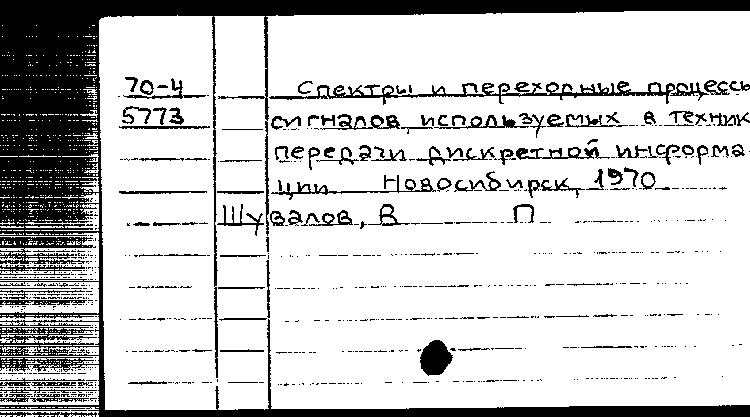 70-4 Спектры и переходные процессы
5773 сигналов, используемых в техник
передачи дискретной информа-
ции. Новосибирск, 1970.
Шувалов, В П